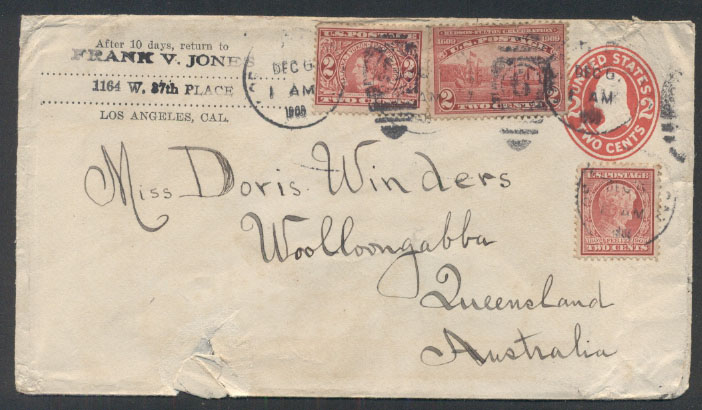 After 10 days, return to
FRANK V. JONES
1164 W. 37th PLACE
LOS ANGELES, CAL.
DEC 6
1 AM
1909
U.S. POSTAGE
2 2
TWO CENTS
HUDSON-FULTON CELEBRATION
1609 1909
U.S. POSTAGE
2 2
TWO CENTS
DEC 6
1 AM
UNITED STATES
2 2
TWO CENTS
U.S. POSTAGE
TWO CENTS
Miss Doris Winders
Woolloongabba
Queensland
Australia